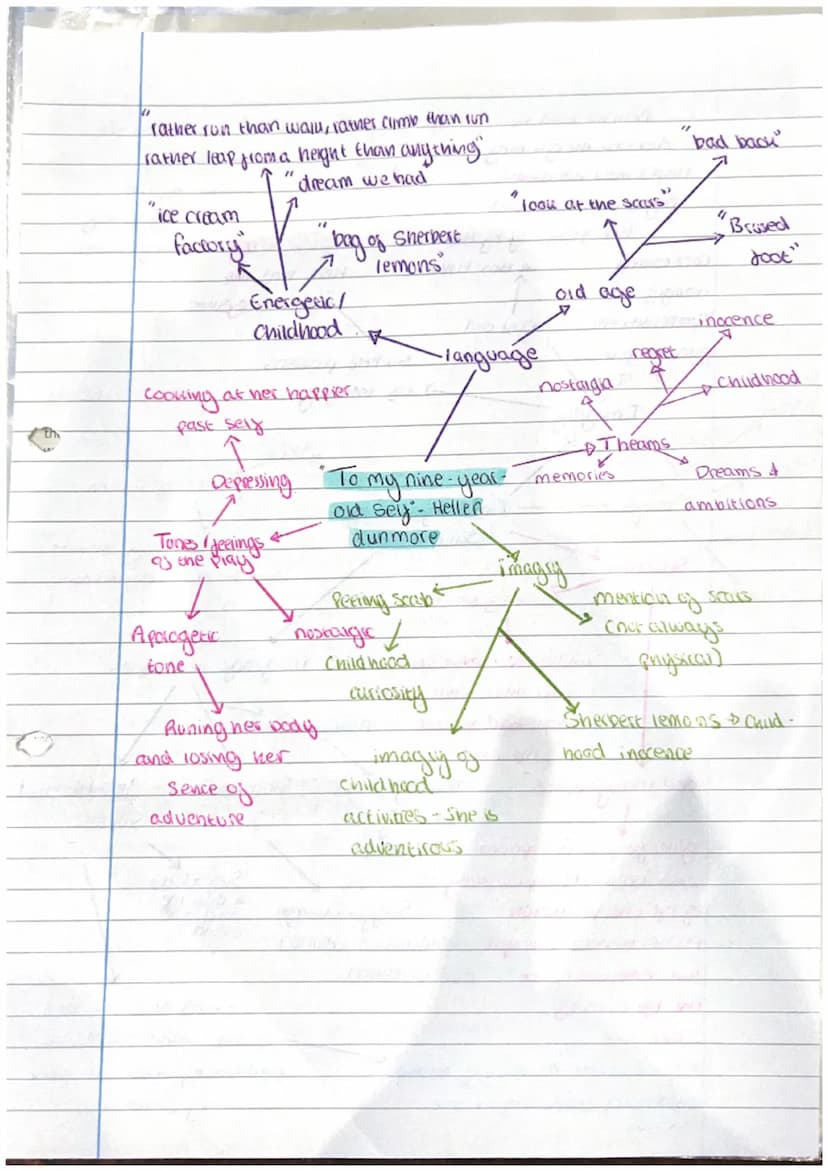 "rather run than walk, rather climb than run
rather leap from a height than anything"
"dream we had"
"ice cream
factory"
"bag of Sherbert
lemons"
Energetic/
Childhood
"bad back"
"look at the scars"
"Brused
foot"
old age
language
inocence
regret
nostalgia
Childhood
Theams
memories
Dreams &
ambitions
Looking at her happier
past self
Depressing
Tones/feelings
of the play
"To my nine-year-
old self" - Hellen
dunmore
Apologetic
tone
nostalgic
Runing her body
and losing her
Sence of
adventure
imagry
Peeling scab
Childhood
curiosity
mention of scars
(not always
physical)
Sherbert lemons → Child-
hood inocence
imagry of
childhood
activities - She is
adventirous